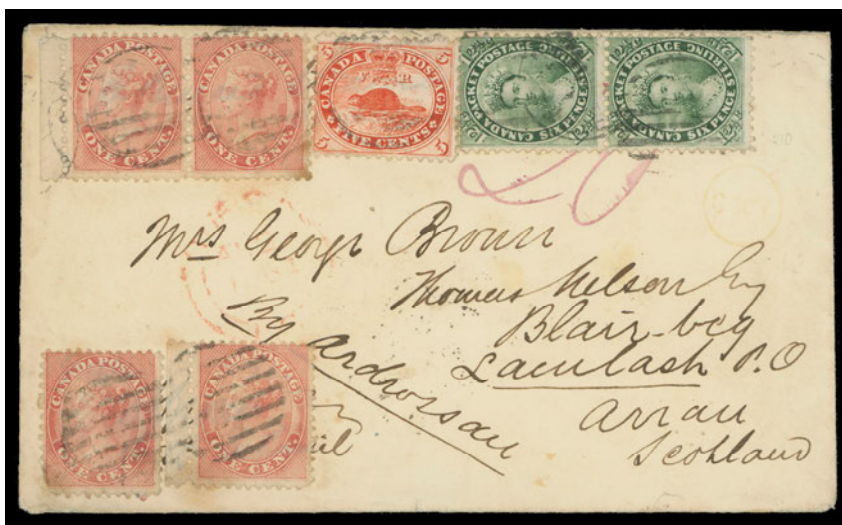 CANADA POSTAGE
ONE CENT.
CANADA POSTAGE
ONE CENT.
5 5
CANADA POSTAGE
FIVE CENTS
5 5
CANADA PACKET POSTAGE
SIX PENCE STERLING
12½c
CANADA PACKET POSTAGE
SIX PENCE STERLING
12½c
Mrs George Brown
Thomas Nelson Esq
Blair-beg
Lamlash P.O
Arran
Scotland
By Ardrossan
CANADA POSTAGE
ONE CENT.
CANADA POSTAGE
ONE CENT.